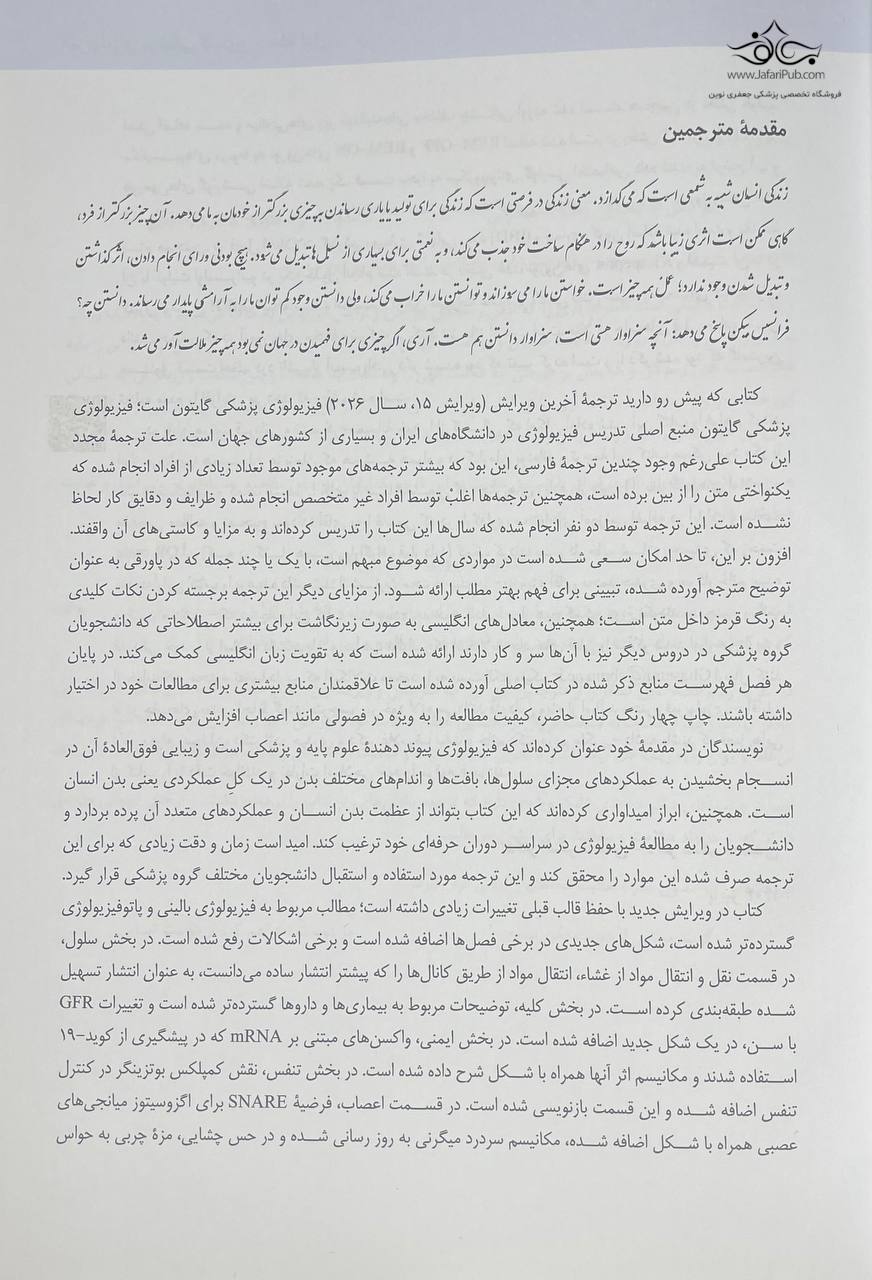 www.JafariPub.com
فروشگاه تخصصی پزشکی جعفری نوین
مقدمهٔ مترجمین
زندگی انسان شبیه به شمعی است که می‌گدازد. معنی زندگی در فرصتی است که زندگی برای تولید یا یاری رساندن به چیزی بزرگتر از خودمان به ما می‌دهد. آن چیز بزرگتر از فرد،
گاهی ممکن است اثری زیبا باشد که روح را در هنگام ساخت خود جذب می‌کند، و به نعمتی برای بسیاری از نسل‌ها تبدیل می‌شود. هیچ بودنی ورای انجام دادن، اثر گذاشتن
و تبدیل شدن وجود ندارد؛ عمل همه چیز است. خواستن ما را می‌سوزاند و توانستن ما را خراب می‌کند، ولی دانستن وجود کم توان ما را به آرامشی پایدار می‌رساند. دانستن چه؟
فرانسیس بیکن پاسخ می‌دهد: آنچه سزاوار هستی است، سزاوار دانستن هم هست. آری، اگر چیزی برای فهمیدن در جهان نمی‌بود همه چیز ملالت آور می‌شد.
کتابی که پیش رو دارید ترجمهٔ آخرین ویرایش (ویرایش ۱۵، سال ۲۰۲۶) فیزیولوژی پزشکی گایتون است؛ فیزیولوژی
پزشکی گایتون منبع اصلی تدریس فیزیولوژی در دانشگاه‌های ایران و بسیاری از کشورهای جهان است. علت ترجمهٔ مجدد
این کتاب علی‌رغم وجود چندین ترجمهٔ فارسی، این بود که بیشتر ترجمه‌های موجود توسط تعداد زیادی از افراد انجام شده که
یکنواختی متن را از بین برده است، همچنین ترجمه‌ها اغلبْ توسط افراد غیر متخصص انجام شده و ظرایف و دقایق کار لحاظ
نشده است. این ترجمه توسط دو نفر انجام شده که سال‌ها این کتاب را تدریس کرده‌اند و به مزایا و کاستی‌های آن واقفند.
افزون بر این، تا حد امکان سعی شده است در مواردی که موضوع مبهم است، با یک یا چند جمله که در پاورقی به عنوان
توضیح مترجم آورده شده، تبیینی برای فهم بهتر مطلب ارائه شود. از مزایای دیگر این ترجمه برجسته کردن نکات کلیدی
به رنگ قرمز داخل متن است؛ همچنین، معادل‌های انگلیسی به صورت زیرنگاشت برای بیشتر اصطلاحاتی که دانشجویان
گروه پزشکی در دروس دیگر نیز با آن‌ها سر و کار دارند ارائه شده است که به تقویت زبان انگلیسی کمک می‌کند. در پایان
هر فصل فهرست منابع ذکر شده در کتاب اصلی آورده شده است تا علاقمندان منابع بیشتری برای مطالعات خود در اختیار
داشته باشند. چاپ چهار رنگ کتاب حاضر، کیفیت مطالعه را به ویژه در فصولی مانند اعصاب افزایش می‌دهد.
نویسندگان در مقدمهٔ خود عنوان کرده‌اند که فیزیولوژی پیوند دهندهٔ علوم پایه و پزشکی است و زیبایی فوق‌العادهٔ آن در
انسجام بخشیدن به عملکردهای مجزای سلول‌ها، بافت‌ها و اندام‌های مختلف بدن در یک کلِ عملکردی یعنی بدن انسان
است. همچنین، ابراز امیدواری کرده‌اند که این کتاب بتواند از عظمت بدن انسان و عملکردهای متعدد آن پرده بردارد و
دانشجویان را به مطالعهٔ فیزیولوژی در سراسر دوران حرفه‌ای خود ترغیب کند. امید است زمان و دقت زیادی که برای این
ترجمه صرف شده این موارد را محقق کند و این ترجمه مورد استفاده و استقبال دانشجویان مختلف گروه پزشکی قرار گیرد.
کتاب در ویرایش جدید با حفظ قالب قبلی تغییرات زیادی داشته است؛ مطالب مربوط به فیزیولوژی بالینی و پاتوفیزیولوژی
گسترده‌تر شده است، شکل‌های جدیدی در برخی فصل‌ها اضافه شده است و برخی اشکالات رفع شده است. در بخش سلول،
در قسمت نقل و انتقال مواد از غشاء، انتقال مواد از طریق کانال‌ها را که پیشتر انتشار ساده می‌دانست، به عنوان انتشار تسهیل
شده طبقه‌بندی کرده است. در بخش کلیه، توضیحات مربوط به بیماری‌ها و داروها گسترده‌تر شده است و تغییرات GFR
با سن، در یک شکل جدید اضافه شده است. در بخش ایمنی، واکسن‌های مبتنی بر mRNA که در پیشگیری از کوید-۱۹
استفاده شدند و مکانیسم اثر آنها همراه با شکل شرح داده شده است. در بخش تنفس، نقش کمپلکس بوتزینگر در کنترل
تنفس اضافه شده و این قسمت بازنویسی شده است. در قسمت اعصاب، فرضیهٔ SNARE برای اگزوسیتوز میانجی‌های
عصبی همراه با شکل اضافه شده، مکانیسم سردرد میگرنی به روز رسانی شده و در حس چشایی، مزهٔ چربی به حواس